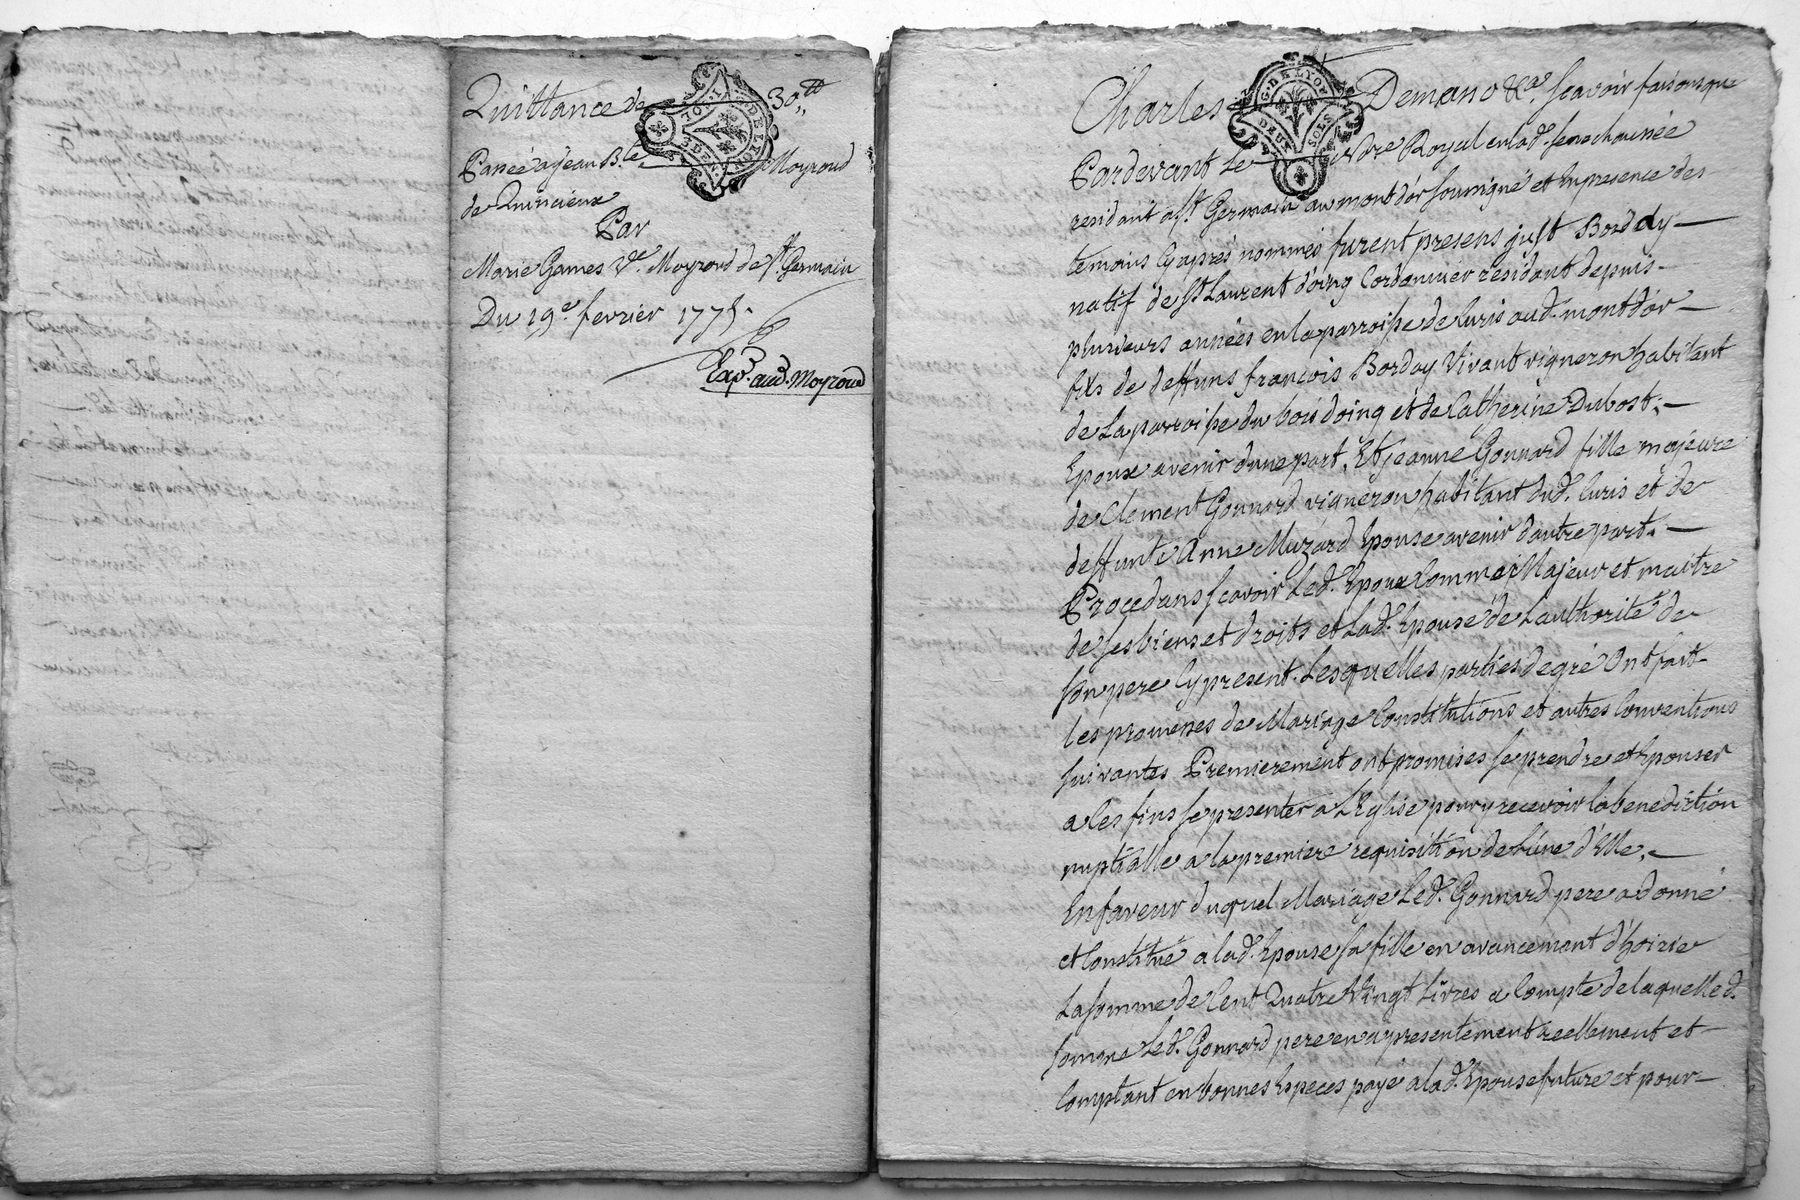 Quittance de 30tt
Passée a jean Bte Moyroud
de Quincieux
Par
Marie Games Ve. Moyroud de St Germain
Du 19e fevrier 1775.
Exp. aud. Moyroud
G. DE LYON
DEUX SOLS
Charles Demano &ca. scavoir faisons que
Pardevant Le Nore Royal en lad. senechaussée
residant a St. Germain au mont d'or soussigné et En presence des
temoins Cy apres nommés furent presens just Borday
natif de St Laurent d'oing Cordonnier residant depuis
plusieurs années en la parroisse de Curis aud. mont d'or
fils de deffuns francois Borday Vivant vigneron habitant
de La parroisse du bois doing et de Catherine Dubost.
Epoux avenir dune part, Et jeanne Gonnard fille majeure
de Clement Gonnard vigneron habitant dud. Curis et de
deffunte Anne Muzard Epouse avenir dautre part.
Procedans scavoir Led. Epoux Comme Majeur et maitre
de ses biens et droits et Lad. Epouse de Lauthorité de
son pere Cy present. Lesquelles parties de gré Ont fait
les promesses de Mariage Constitutions et autres Conventions
suivantes Premierement ont promises se prendre et Epouser
a les fins se presenter a L'Eglise pour y recevoir la benediction
nuptialle a la premiere requisition de L'une d'Elle.
En faveur duquel Mariage Led. Gonnard pere a donné
et Constitué a lad. Epouse sa fille en avancement d'hoirie
La somme de Cent Quatre Vingt Livres a Compte de laquelle d.
somme Led. Gonnard pere en a presentement reellement et
Comptant en bonnes Especes payé a lad. Epouse future et pour